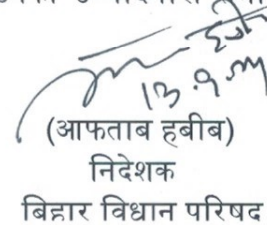 13.9.
(आफताब हबीब)
निदेशक
बिहार विधान परिषद